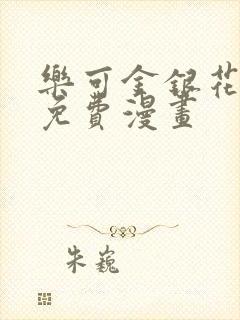 樂可金銀花
免費漫畫
朱巍